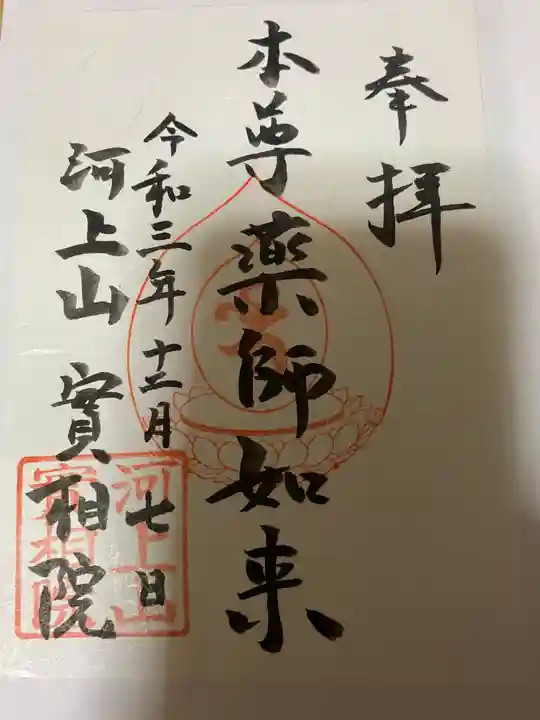 奉拝
本尊薬師如来
令和三年十二月七日
河上山 實相院
河上山
實相院